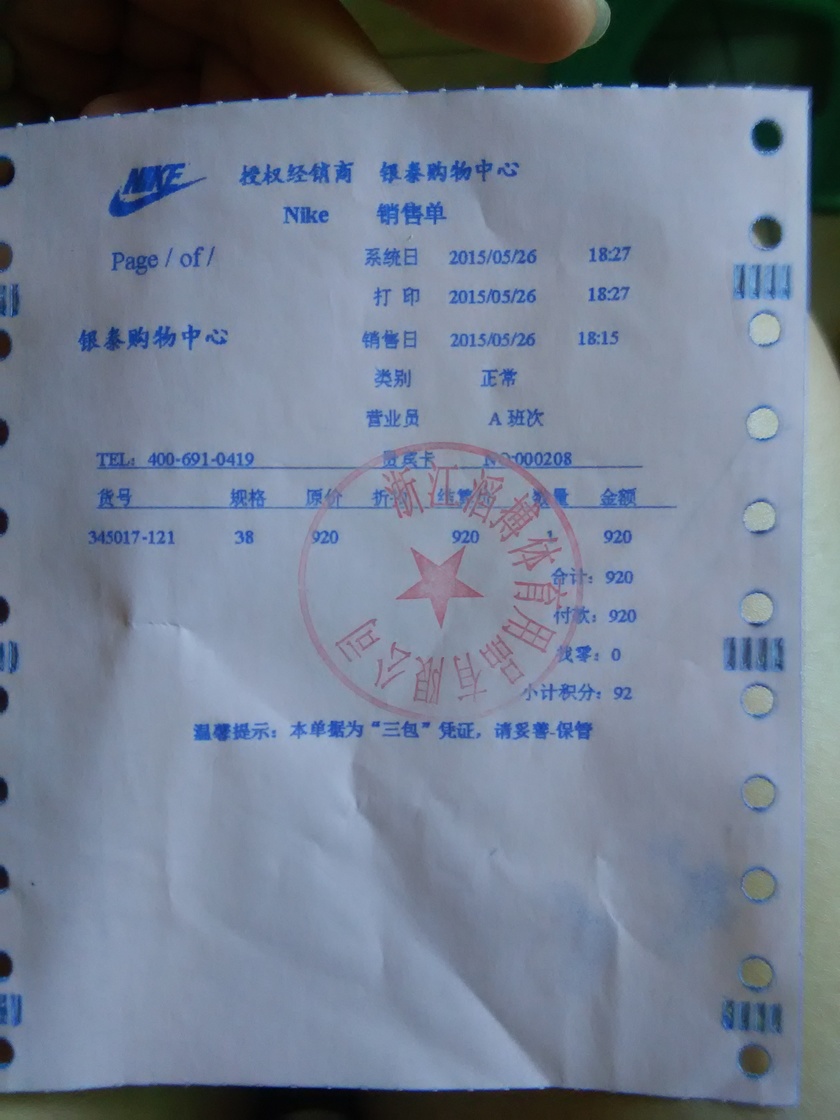 NIKE 授权经销商 银泰购物中心
Nike 销售单
Page / of / 系统日 2015/05/26 18:27
打 印 2015/05/26 18:27
银泰购物中心 销售日 2015/05/26 18:15
类别 正常
营业员 A 班次
TEL: 400-691-0419 员卡 NO:000208
货号 规格 原价 折 数量 金额
345017-121 38 920 920 1 920
合计: 920
付款: 920
找零: 0
小计积分: 92
温馨提示: 本单据为“三包”凭证, 请妥善-保管
浙江滔搏体育用品有限公司